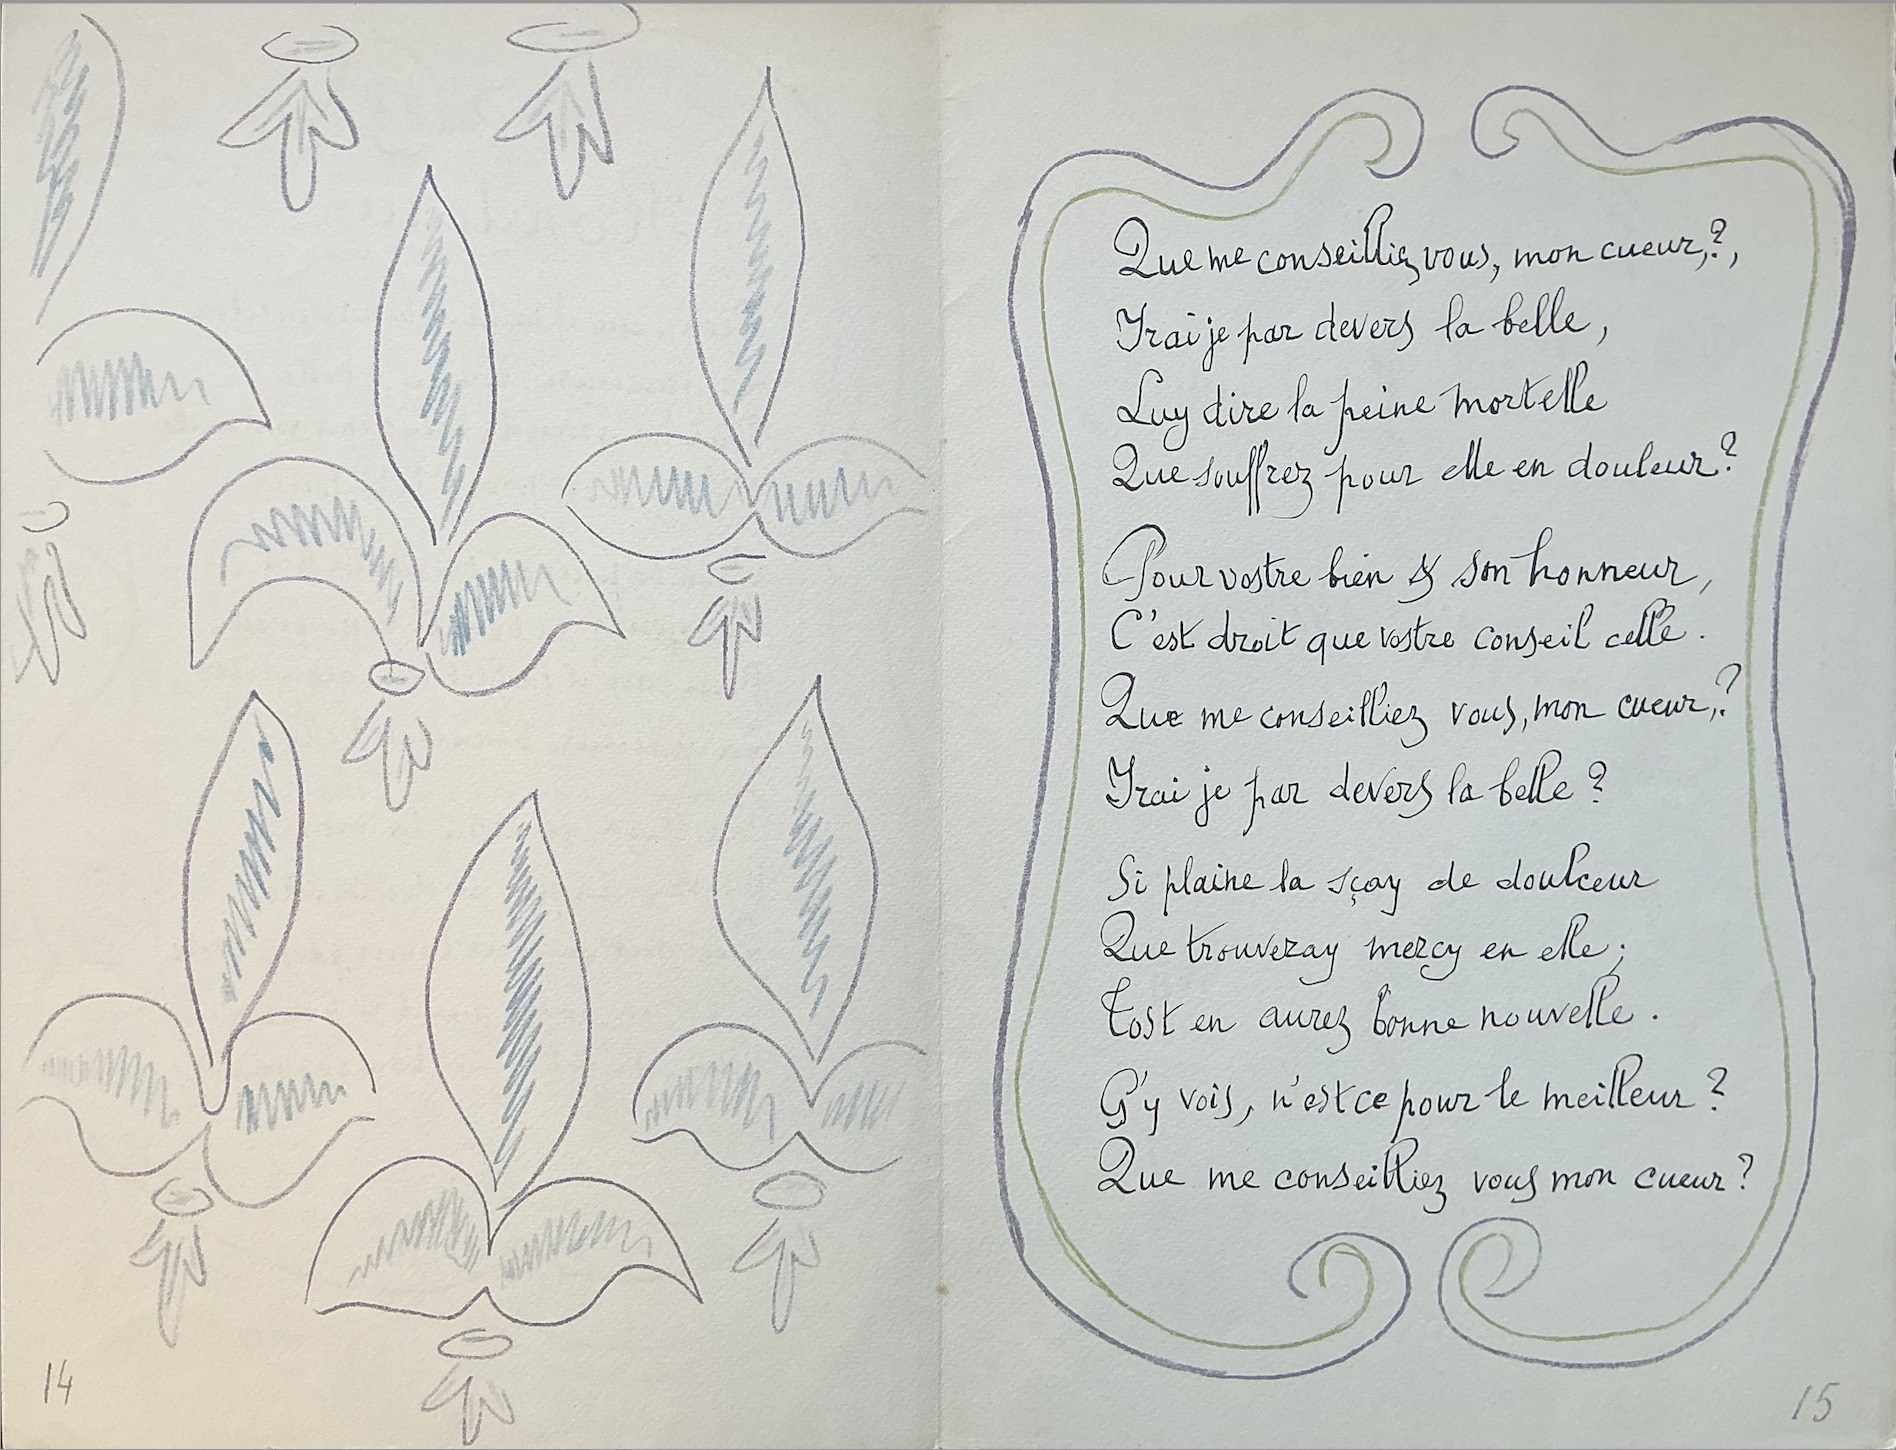 14
Que me conseilliez vous, mon cueur,?,
Irai je par devers la belle,
Luy dire la peine mortelle
Que souffrez pour elle en douleur?
Pour vostre bien & son honneur,
C'est droit que vostre conseil celle.
Que me conseilliez vous, mon cueur,?
Irai je par devers la belle?
Si plaine la sçay de doulceur
Que trouveray mercy en elle;
Tost en aurez bonne nouvelle.
G'y vois, n'est ce pour le meilleur?
Que me conseilliez vous mon cueur?
15